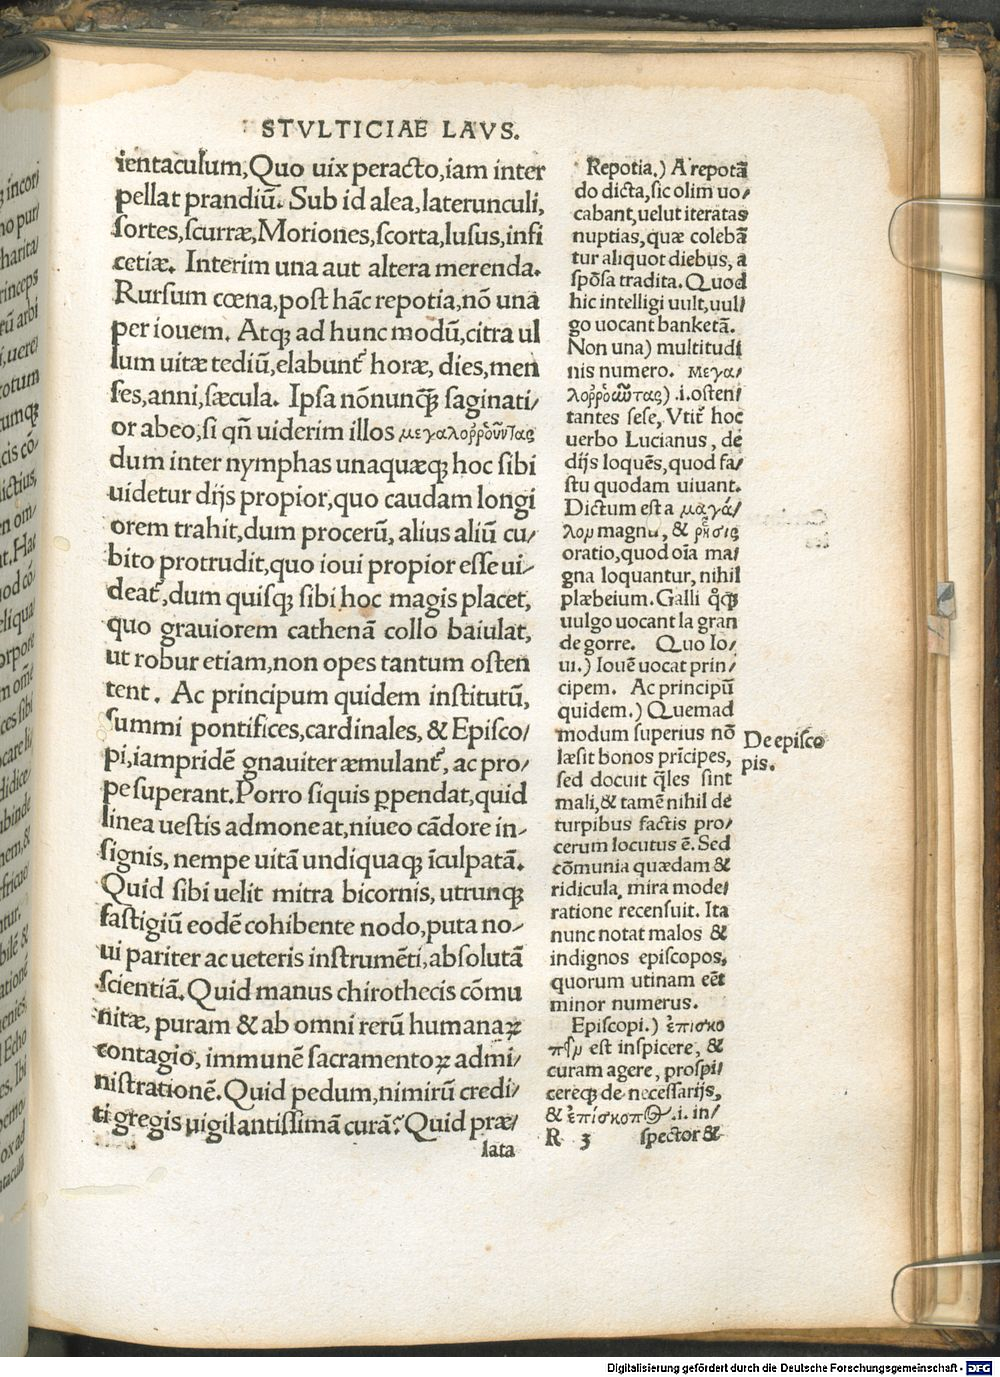 STVLTICIAE LAVS.
ientaculum, Quo uix peracto, iam inter
pellat prandiū. Sub id alea, laterunculi,
sortes, scurræ, Moriones, scorta, lusus, infi
cetiæ. Interim una aut altera merenda.
Rursum cœna, post hāc repotia, nō una
per iouem. Atq; ad hunc modū, citra ul
lum uitæ tediū, elabunt᷑ horæ, dies, men
ses, anni, sæcula. Ipsa nōnunq̄ saginati/
or abeo, si qn̄ uiderim illos μεγαλορῤοῦντας
dum inter nymphas unaquæq; hoc sibi
uidetur dijs propior, quo caudam longi
orem trahit, dum procerū, alius aliū cu/
bito protrudit, quo ioui propior esse ui/
deat᷑, dum quisq; sibi hoc magis placet,
quo grauiorem cathenā collo baiulat,
ut robur etiam, non opes tantum osten
tent. Ac principum quidem institutū,
summi pontifices, cardinales, & Episco/
pi, iampridē gnauiter æmulant᷑, ac pro/
pe superant. Porro siquis ꝑpendat, quid
linea uestis admoneat, niueo cādore in/
signis, nempe uitā undiquaq; īculpatā.
Quid sibi uelit mitra bicornis, utrunq;
fastigiū eodē cohibente nodo, puta no/
ui pariter ac ueteris instrumēti, absolutā
scientiā. Quid manus chirothecis cōmu
nitæ, puram & ab omni rerū humanaꝝ
contagio, immunē sacramentoꝝ admi/
nistrationē. Quid pedum, nimirū credi/
ti gregis uigilantissimā curā? Quid præ/
lata
Repotia.) A repotā
do dicta, sic olim uo/
cabant, uelut iteratas
nuptias, quæ colebā
tur aliquot diebus, a
spōsa tradita. Quod
hic intelligi uult, uul/
go uocant banketā.
Non una) multitudi
nis numero. μεγα/
λορῤοῦντας) .i. osten/
tantes sese, Vtit᷑ hoc
uerbo Lucianus, de
dijs loquēs, quod fa/
stu quodam uiuant.
Dictum est a μαγά/
λου magnu, & ῥῆσις
oratio, quod oīa ma/
gna loquantur, nihil
plæbeium. Galli q̊q̄
uulgo uocant la gran
de gorre. Quo Io/
ui.) Iouē uocat prin/
cipem. Ac principū
quidem.) Quemad
modum superius nō
læsit bonos prīcipes,
sed docuit q̄les sint
mali, & tamē nihil de
turpibus factis pro/
cerum locutus ē. Sed
cōmunia quædam &
ridicula, mira mode/
ratione recensuit. Ita
nunc notat malos &
indignos episcopos,
quorum utinam eēt
minor numerus.
Episcopi.) ἐπισκο
πεῖν est inspicere, &
curam agere, prospi/
cereq; de necessarijs,
& ἐπίσκοπος .i. in/
R 3 spector &
De episco
pis.
Digitalisierung gefördert durch die Deutsche Forschungsgemeinschaft - DFG